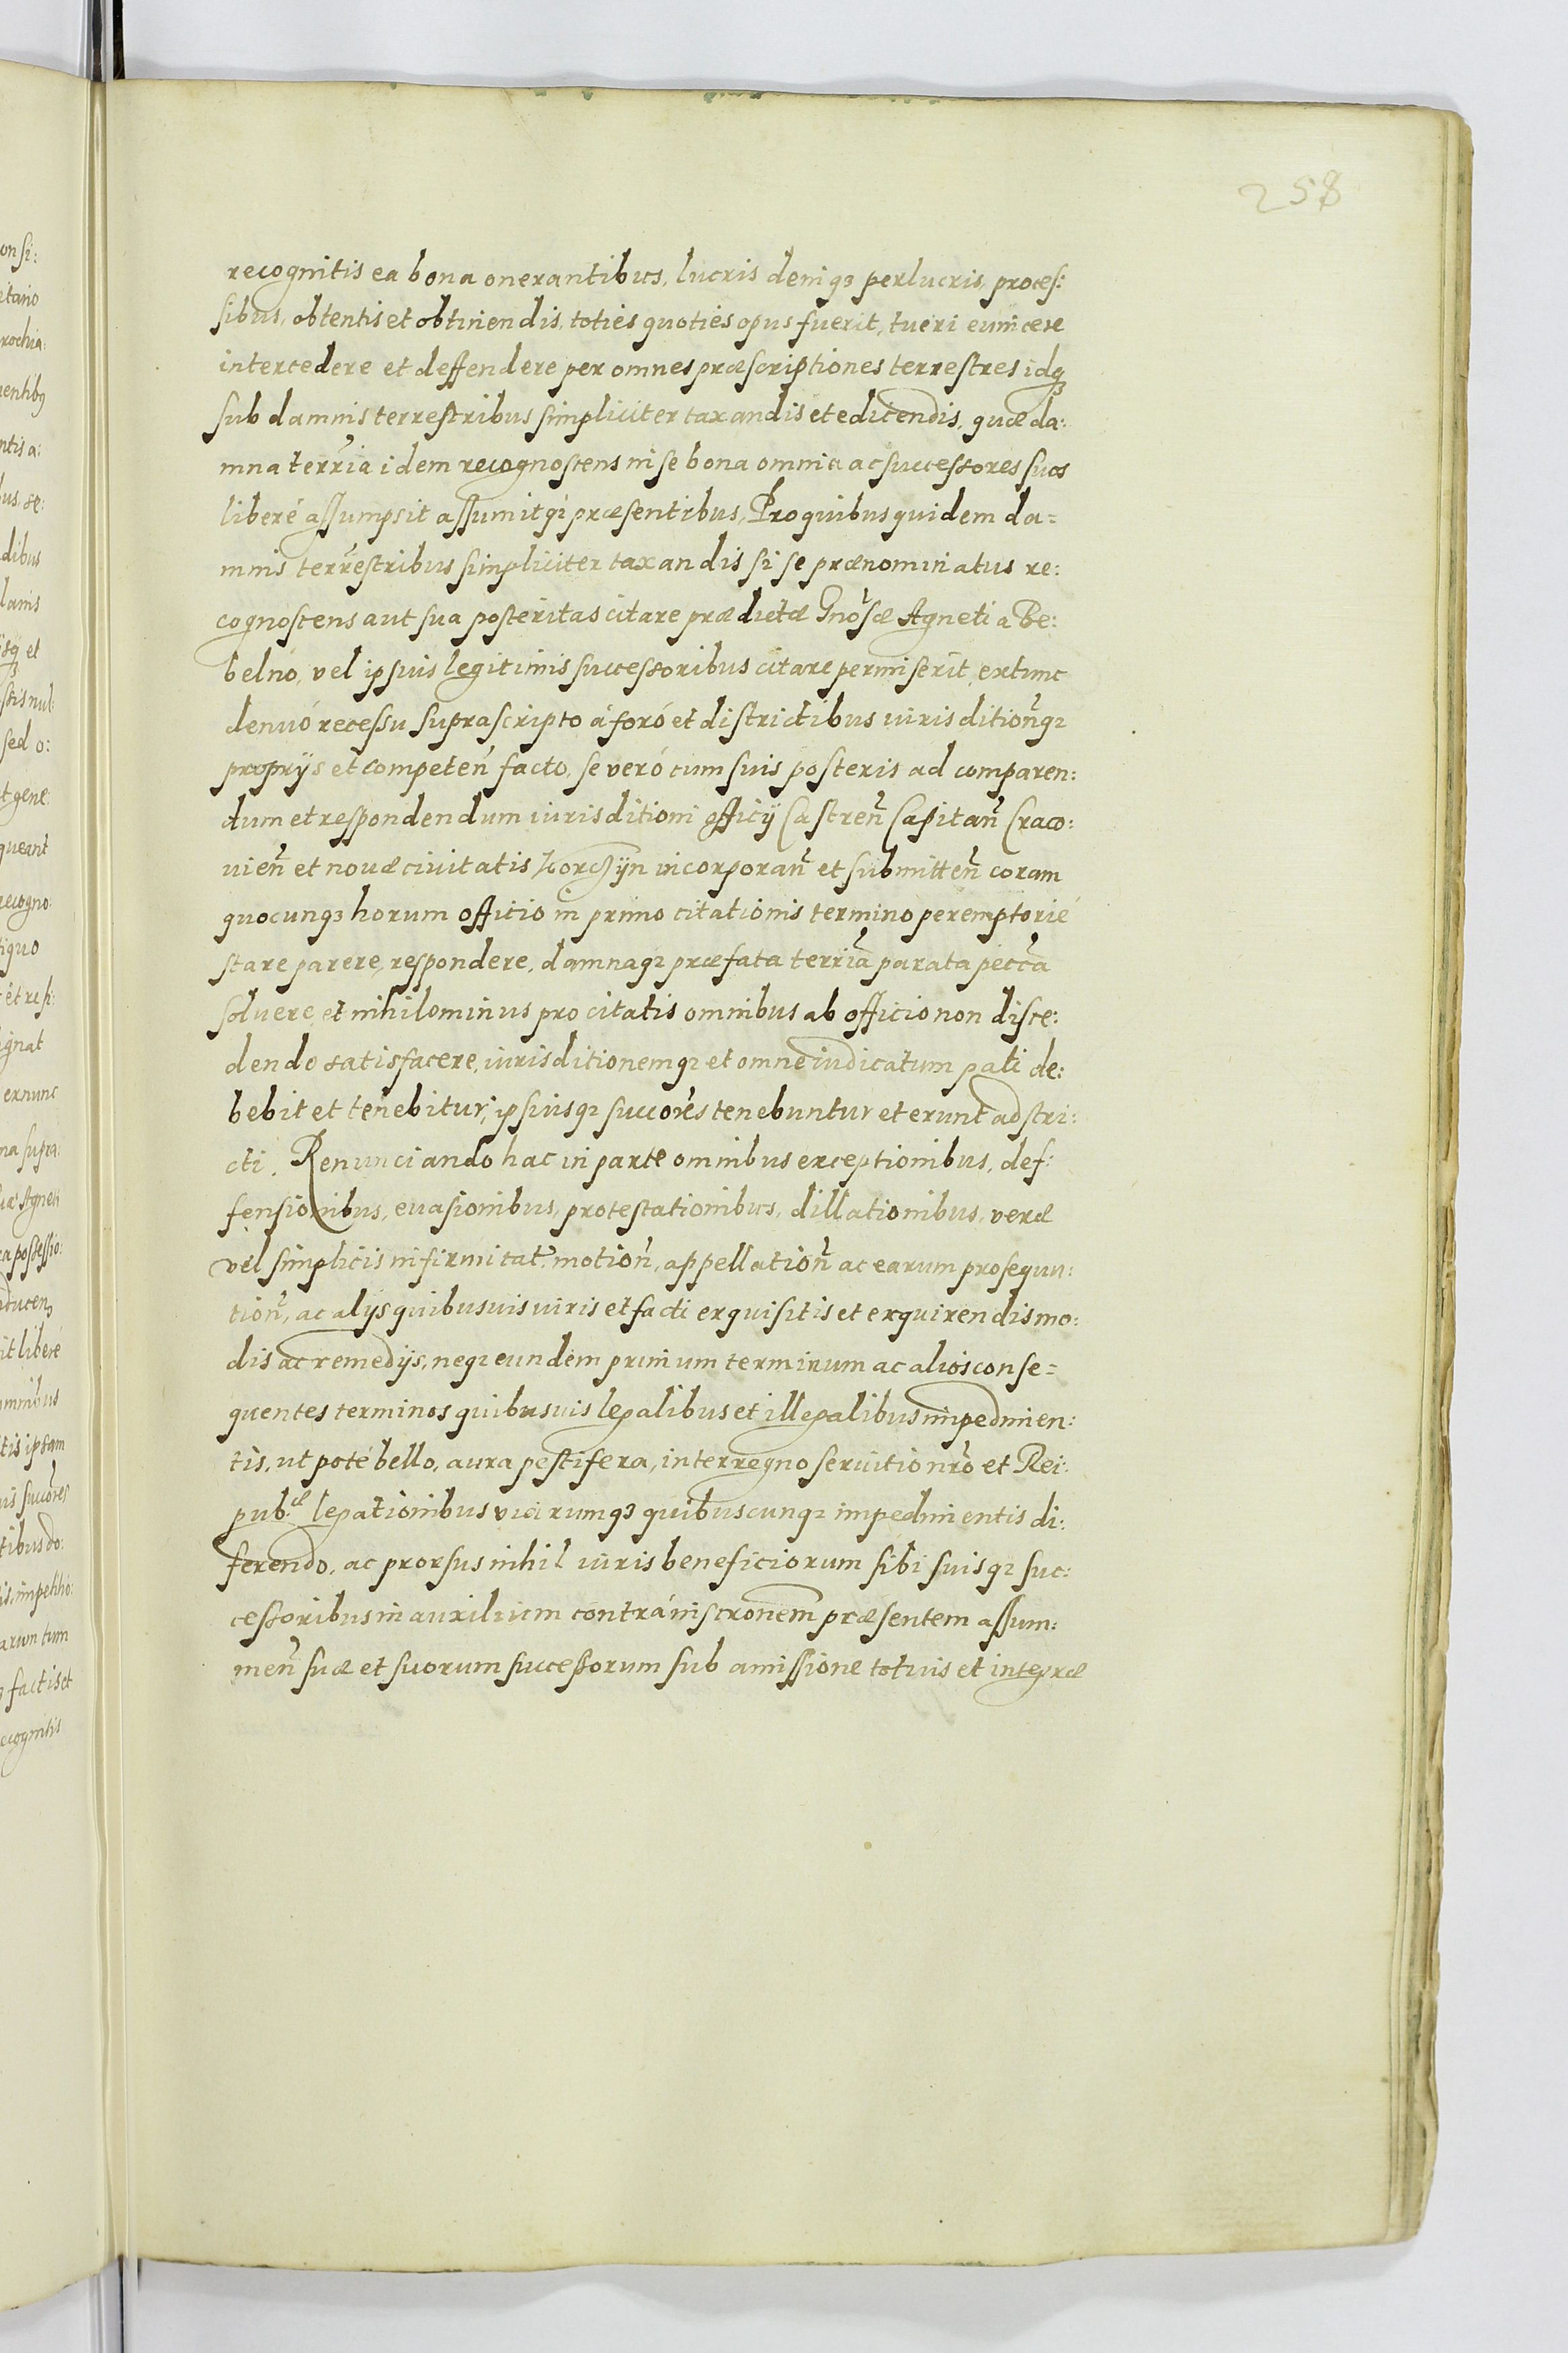 258
recognitis ea bona onerantibus, lucris deniqꝫ perlucris, proces:
sibus, obtentis et obtinendis, toties quoties opus fuerit, tueri euincere
intercedere et deffendere per omnes præscriptiones terrestres idqꝫ
sub damnis terrestribus simpliciter taxandis et edicendis, quæ da:
mna terr̃ia idem recognoscens in se bona omnia ac successores suos
liberé assumpsit assumitqꝫ præsentibus, Pro quibus quidem da=
mnis terrestribus simpliciter taxandis si se prænominatus re:
cognoscens aut sua posteritas citare prædictæ Gnõsæ Agneti a Be:
belno, vel ipsius legitimis successoribus citare permiserit, extunc
denuó recessu suprascripto á foró et districtibus iuris ditioñqꝫ
proprijs et competeñ facto, se veró cum suis posteris ad comparen:
dum et respondendum iurisditioni officij Castreñ Capitañ Craco:
uieñ et nouæ ciuitatis Korczijn incorporañ et submitteñ coram
quocunqꝫ horum officio in primo citationis termino peremptorié
stare parere, respondere, damnaqꝫ præfata terr̃ia parata pecc̃a
soluere, et nihilominus pro citatis omnibus ab officio non disce:
dendo satisfacere, iurisditionemqꝫ et omne iudicatum pati de:
bebit et tenebitur, ipsiusqꝫ succõres tenebuntur et erunt adstri:
cti. Renunciando hac in parte omnibus exceptionibus, def:
fensionibus, euasionibus, protestationibus, dillationibus, veræ
vel simplicis infirmitat: motioñ, appellatioñ ac earum prosequu:
tioñ, ac alijs quibusuis iuris et facti exquisitis et exquirendis mo:
dis ac remedijs, neqꝫ eundem primum terminum ac alios conse=
quentes terminos quibusuis legalibus et illegalibus impedimen:
tis, ut poté bello, aura pestifera, interregno seruitio nr̃o et Rei:
pub:æ legationibus viarumqꝫ quibuscunqꝫ impedimentis di:
ferendo, ac prorsus nihil iuris beneficiorum sibi suisqꝫ suc:
cessoribus in auxilium contrá inscronem præsentem assum:
meñ suæ et suorum successorum sub amissione totius et integræ